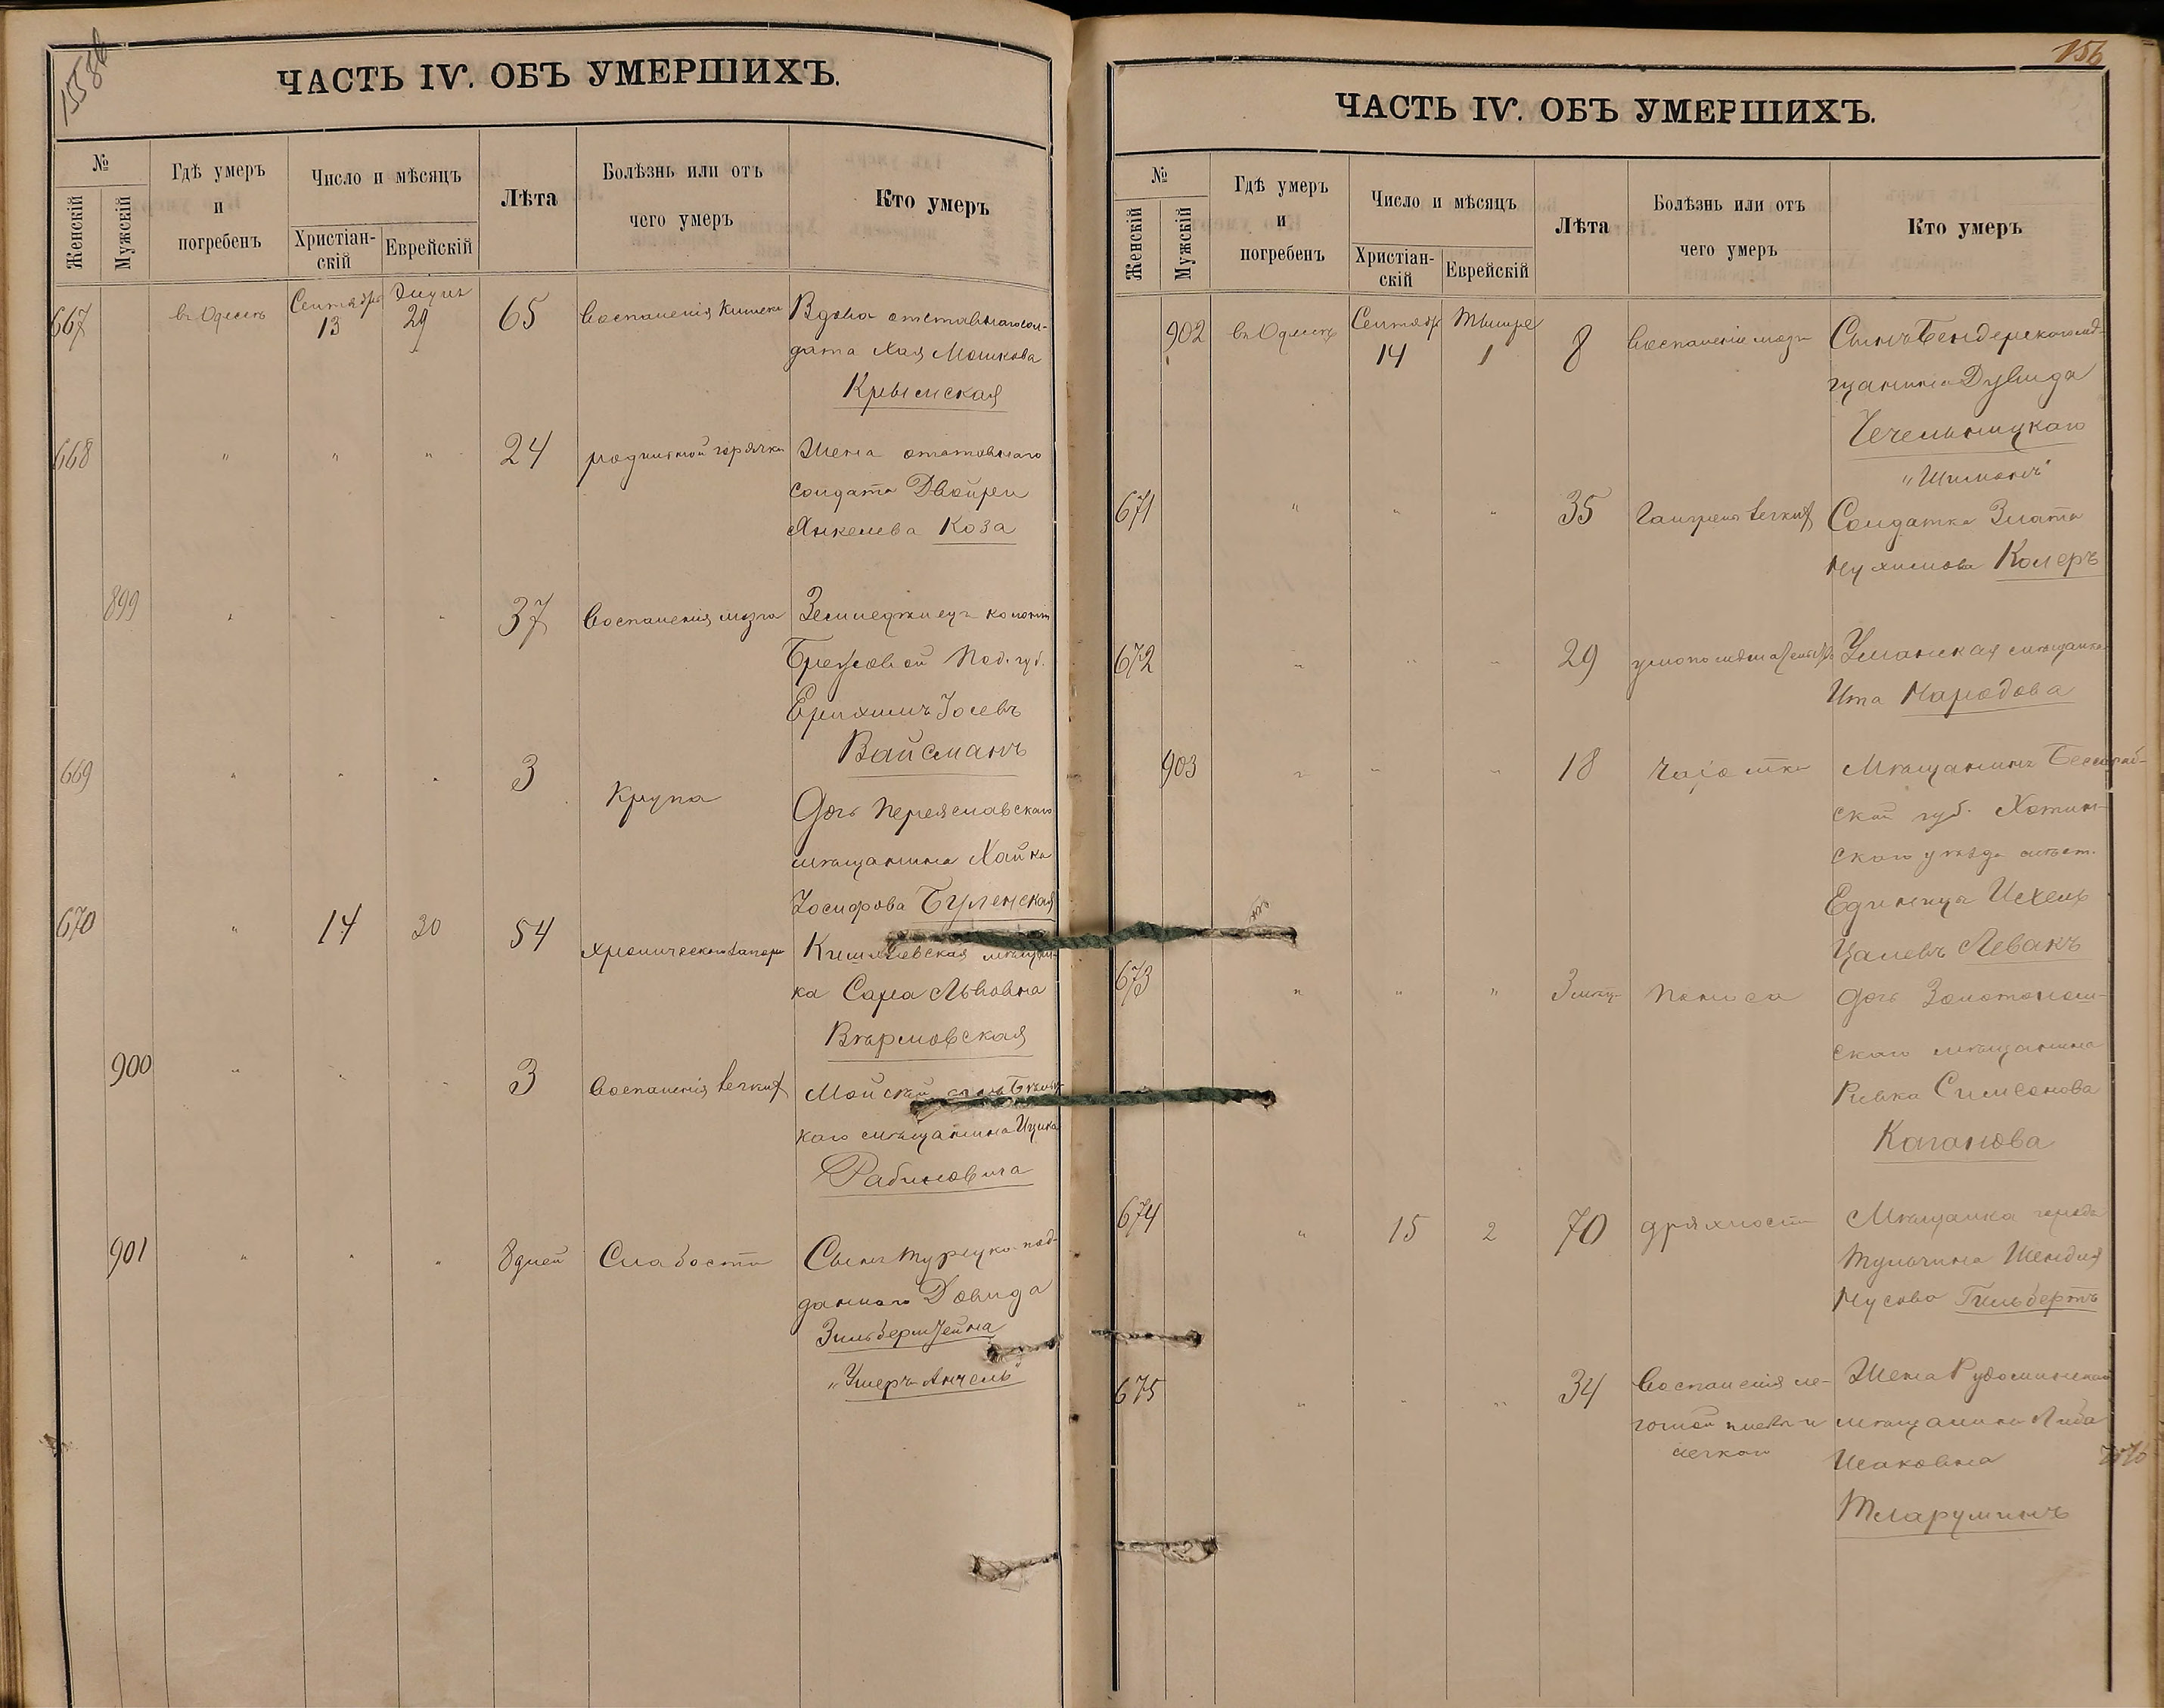 155 об
ЧАСТЬ IV. ОБЪ УМЕРШИХЪ.
№
Женскій
Мужскій
Гдѣ умеръ
и
погребенъ
Число и мѣсяцъ
Христіан-
скій
Еврейскій
Лѣта
Болѣзнь или отъ
чего умеръ
Кто умеръ
667 въ Одессѣ Сентября 13 Элуль 29 65 Воспаленія кишекъ Вдова отставнаго сол-
дата Хая Мошкова
Крымская
668 " " " 24 родильной горячки Жена отставнаго
солдата Двойра
Янкелева Коза
899 " " " 37 Воспаленія мозга Земледѣлецъ колоніи
Под. губ.
Ерихимъ Іосевъ
Вайсманъ
669 " " " 3 Крупа
Дочь Переяславскаго
мѣщанина Хайка
Іосифова Буленская
670 " 14 30 54 хроническаго запора Кишиневская мѣщан-
ка Сара Львовна
Вѣрмовская
900 " " " 3 Воспаленія легких Мойсей сынъ
каго мѣщанина Ицика
Рабиновича
901 " " " 8 дней Слабости Сынъ турецко-под-
даннаго Довида
Зильберштейна
"Умеръ Анчель"
156
ЧАСТЬ IV. ОБЪ УМЕРШИХЪ.
№
Женскій
Мужскій
Гдѣ умеръ
и
погребенъ
Число и мѣсяцъ
Христіан-
скій
Еврейскій
Лѣта
Болѣзнь или отъ
чего умеръ
Кто умеръ
902 въ Одессѣ Сентябр 14 Тишре 1 8 Воспаленіе мозга Сынъ Бендерскаго мѣ-
щанина Дувида
Чечельницкаго
"Шимонъ"
671 " " " 35 Гангрена легких Солдатка Злата
Нухимова Колеръ
672 " " " 29 Уманская мѣщанка
Ита Народова
903 " " " 18 чахотка Мѣщанинъ Бессараб-
ской губ. Хотин-
скаго уѣзда мѣст.
Единицъ Исхель
Цалевъ Левакъ
673 " " " 3 мѣс. Поноса Дочь Золотонош-
скаго мѣщанина
Ривка Симсонова
Каганова
674 " 15 2 70 дряхлости Мѣщанка города
Тульчина Шендля
Нусова Гильбертъ
675 " " " 34 Воспаленія ле-
гочной плевы и
легкаго
Жена
мѣщанина Либа
Исаковна